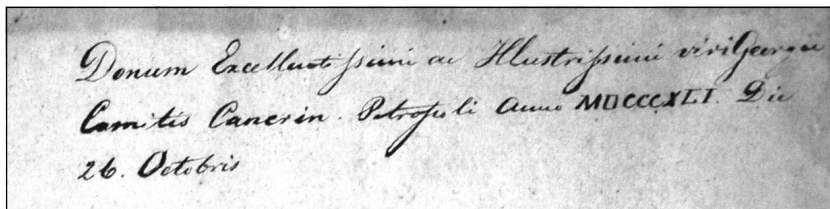 Donum Excellentissimi ac Illustrissimi viri Georgii
Comitis Cancrin. Petropoli Anno MDCCCXLI. Die
26. Octobris